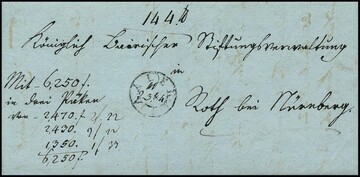 144
Königlich Bairischer Stiftungsverwaltung
in
Roth bei Nürnberg.
Mit 6,250 f.
in drei
von 2470. f.
2430.
1,350.
6,250 f.